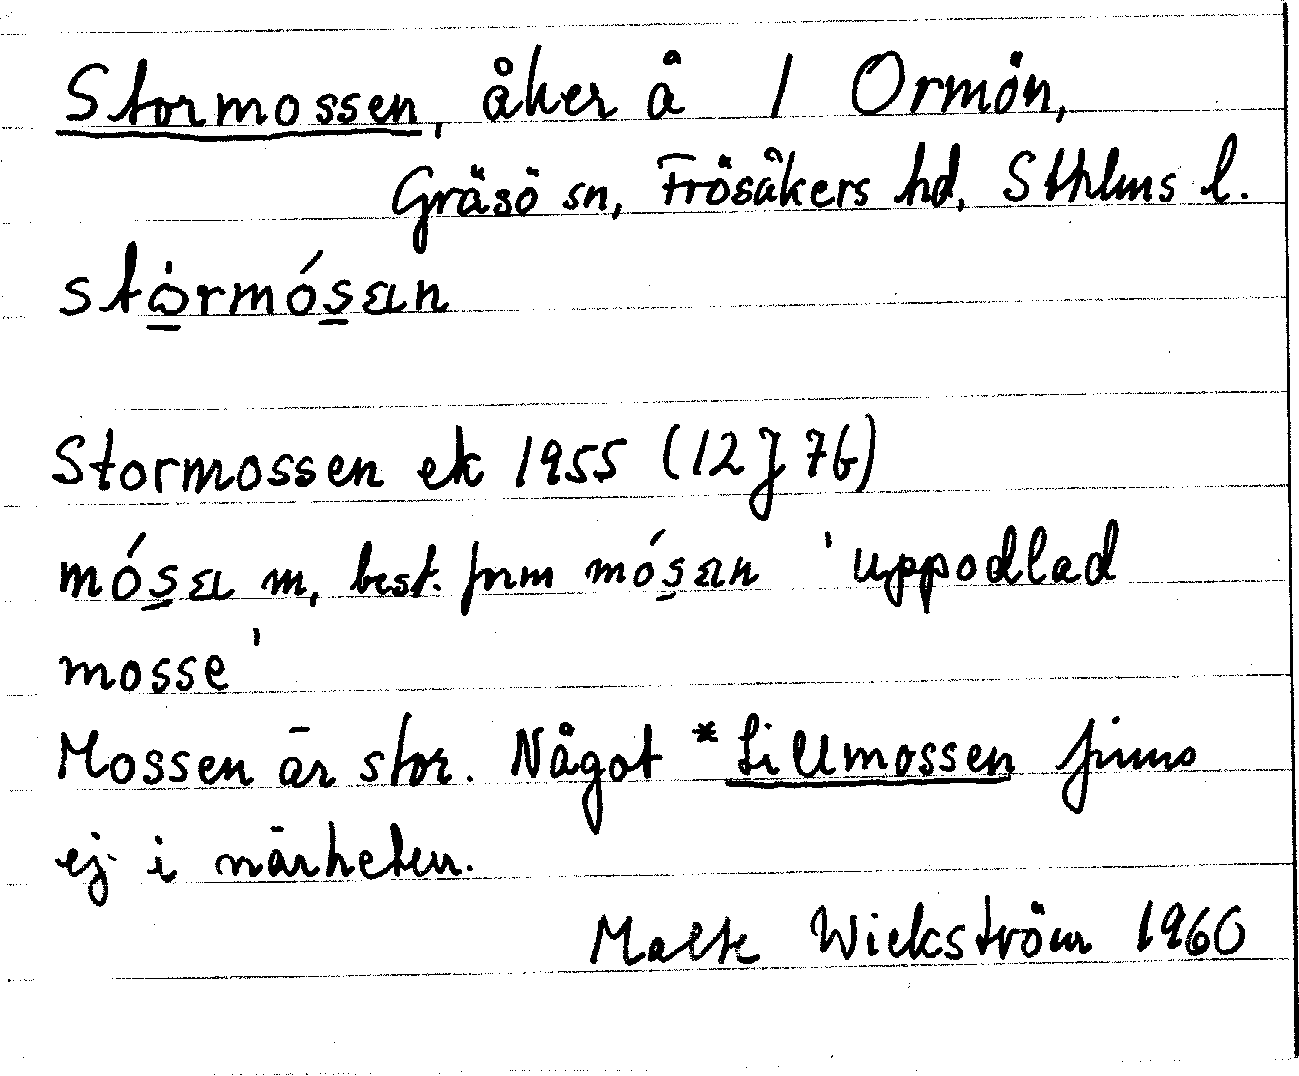 Stormossen, åker å 1 Ormön,
Gräsö sn, Frösåkers hd, Sthlms l.
stòrmósän
Stormossen ek 1955 (12J 7b)
mósä m, best. form mósän 'uppodlad
mosse'
Mossen är stor. Något *Lillmossen finns
ej i närheten.
Malte Wickström 1960